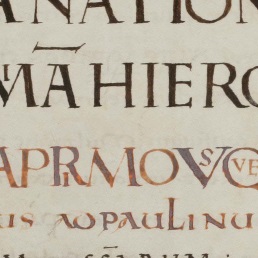 ANATION
MĀHIERO
APRIMOVSQVE
IIS ADPAULINU